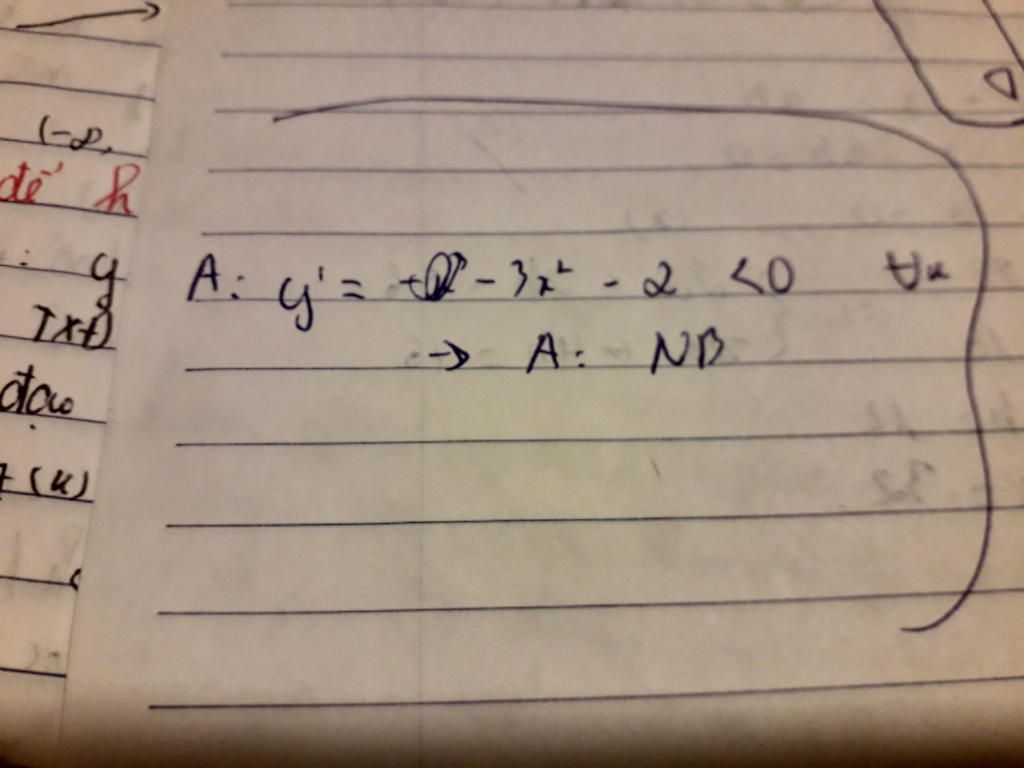 (-∞,
để h
: y
TXĐ
đạo
f(x)
A: y' = -3x² - 2 <0 ∀x
→ A: NB